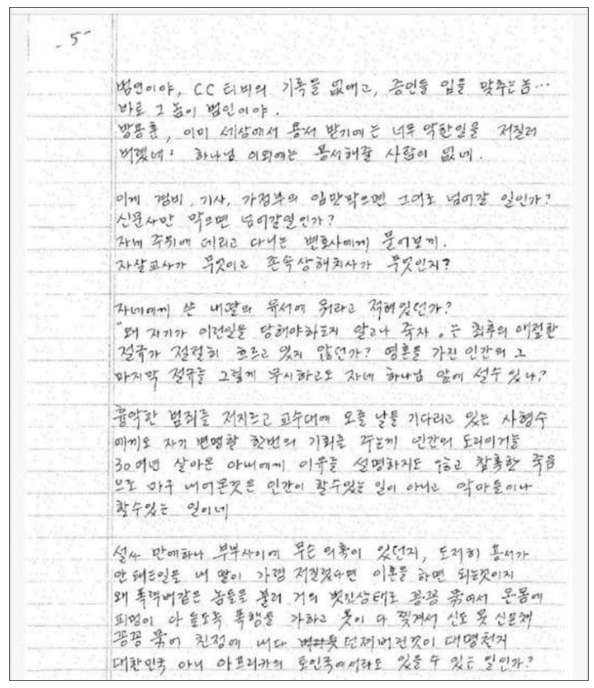 -5-
범인이야, CC 티비의 기록을 없애고, 증인들 입을 맞추는 놈…
바로 그 놈이 범인이야.
방용훈, 이미 세상에서 용서 받기에는 너무 악한일을 저질러
버렸네. 하나님 이외에는 용서해줄 사람이 없네.
이게 경비, 기사, 가정부의 입만막으면 그대로 넘어갈 일인가?
신문사만 막으면 넘어갈일인가?
자네 주위에 데리고 다니는 변호사에게 물어보게.
자살교사가 무엇이고 존속상해치사가 무엇인지?
자네에게 쓴 내딸의 유서에 뭐라고 적혀있던가?
"왜 자기가 이런일을 당해야하는지 알고나 죽자." 는 최후의 애절한
절규가 절절히 흐르고 있지 않던가? 영혼을 가진 인간의 그
마지막 절규를 그렇게 무시하고도 자네 하나님 앞에 설수 있나?
흉악한 범죄를 저지르고 교수대에 오를 날을 기다리고 있는 사형수
에게도 자기 변명할 한번의 기회를 주는게 인간의 도리이거늘
30여년 살아온 아내에게 이유를 설명하지도 않고 참혹한 죽음
으로 마구 내어몬것은 인간이 할수있는 일이 아니고 악마들이나
할수있는 일이네
설사 만에하나 부부사이에 무슨 의혹이 있던지, 도저히 용서가
안 돼는일을 내 딸이 가령 저질렀다면 이혼을 하면 되는것이지
왜 폭력배같은 놈들을 불러 거의 벗긴상태로 꽁꽁 묶어서 온몸에
피멍이 다 들도록 폭행을 가하고 옷이 다 찢겨서 신도 못 신은채
꽁꽁 묶어 친정에 내다 버리듯 던져버린것이 대명천지
대한민국 아니 아프리카의 토인국에서라도 있을 수 있는 일인가?